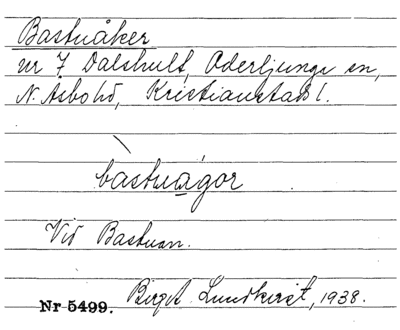 Bastuåker
nr 7 Dalshult, Oderljunga sn,
N. Åsbo hd, Kristianstads l.
bastuágor
Vid Bastuan.
Nr 5499. Birgit Lundkvist, 1938.